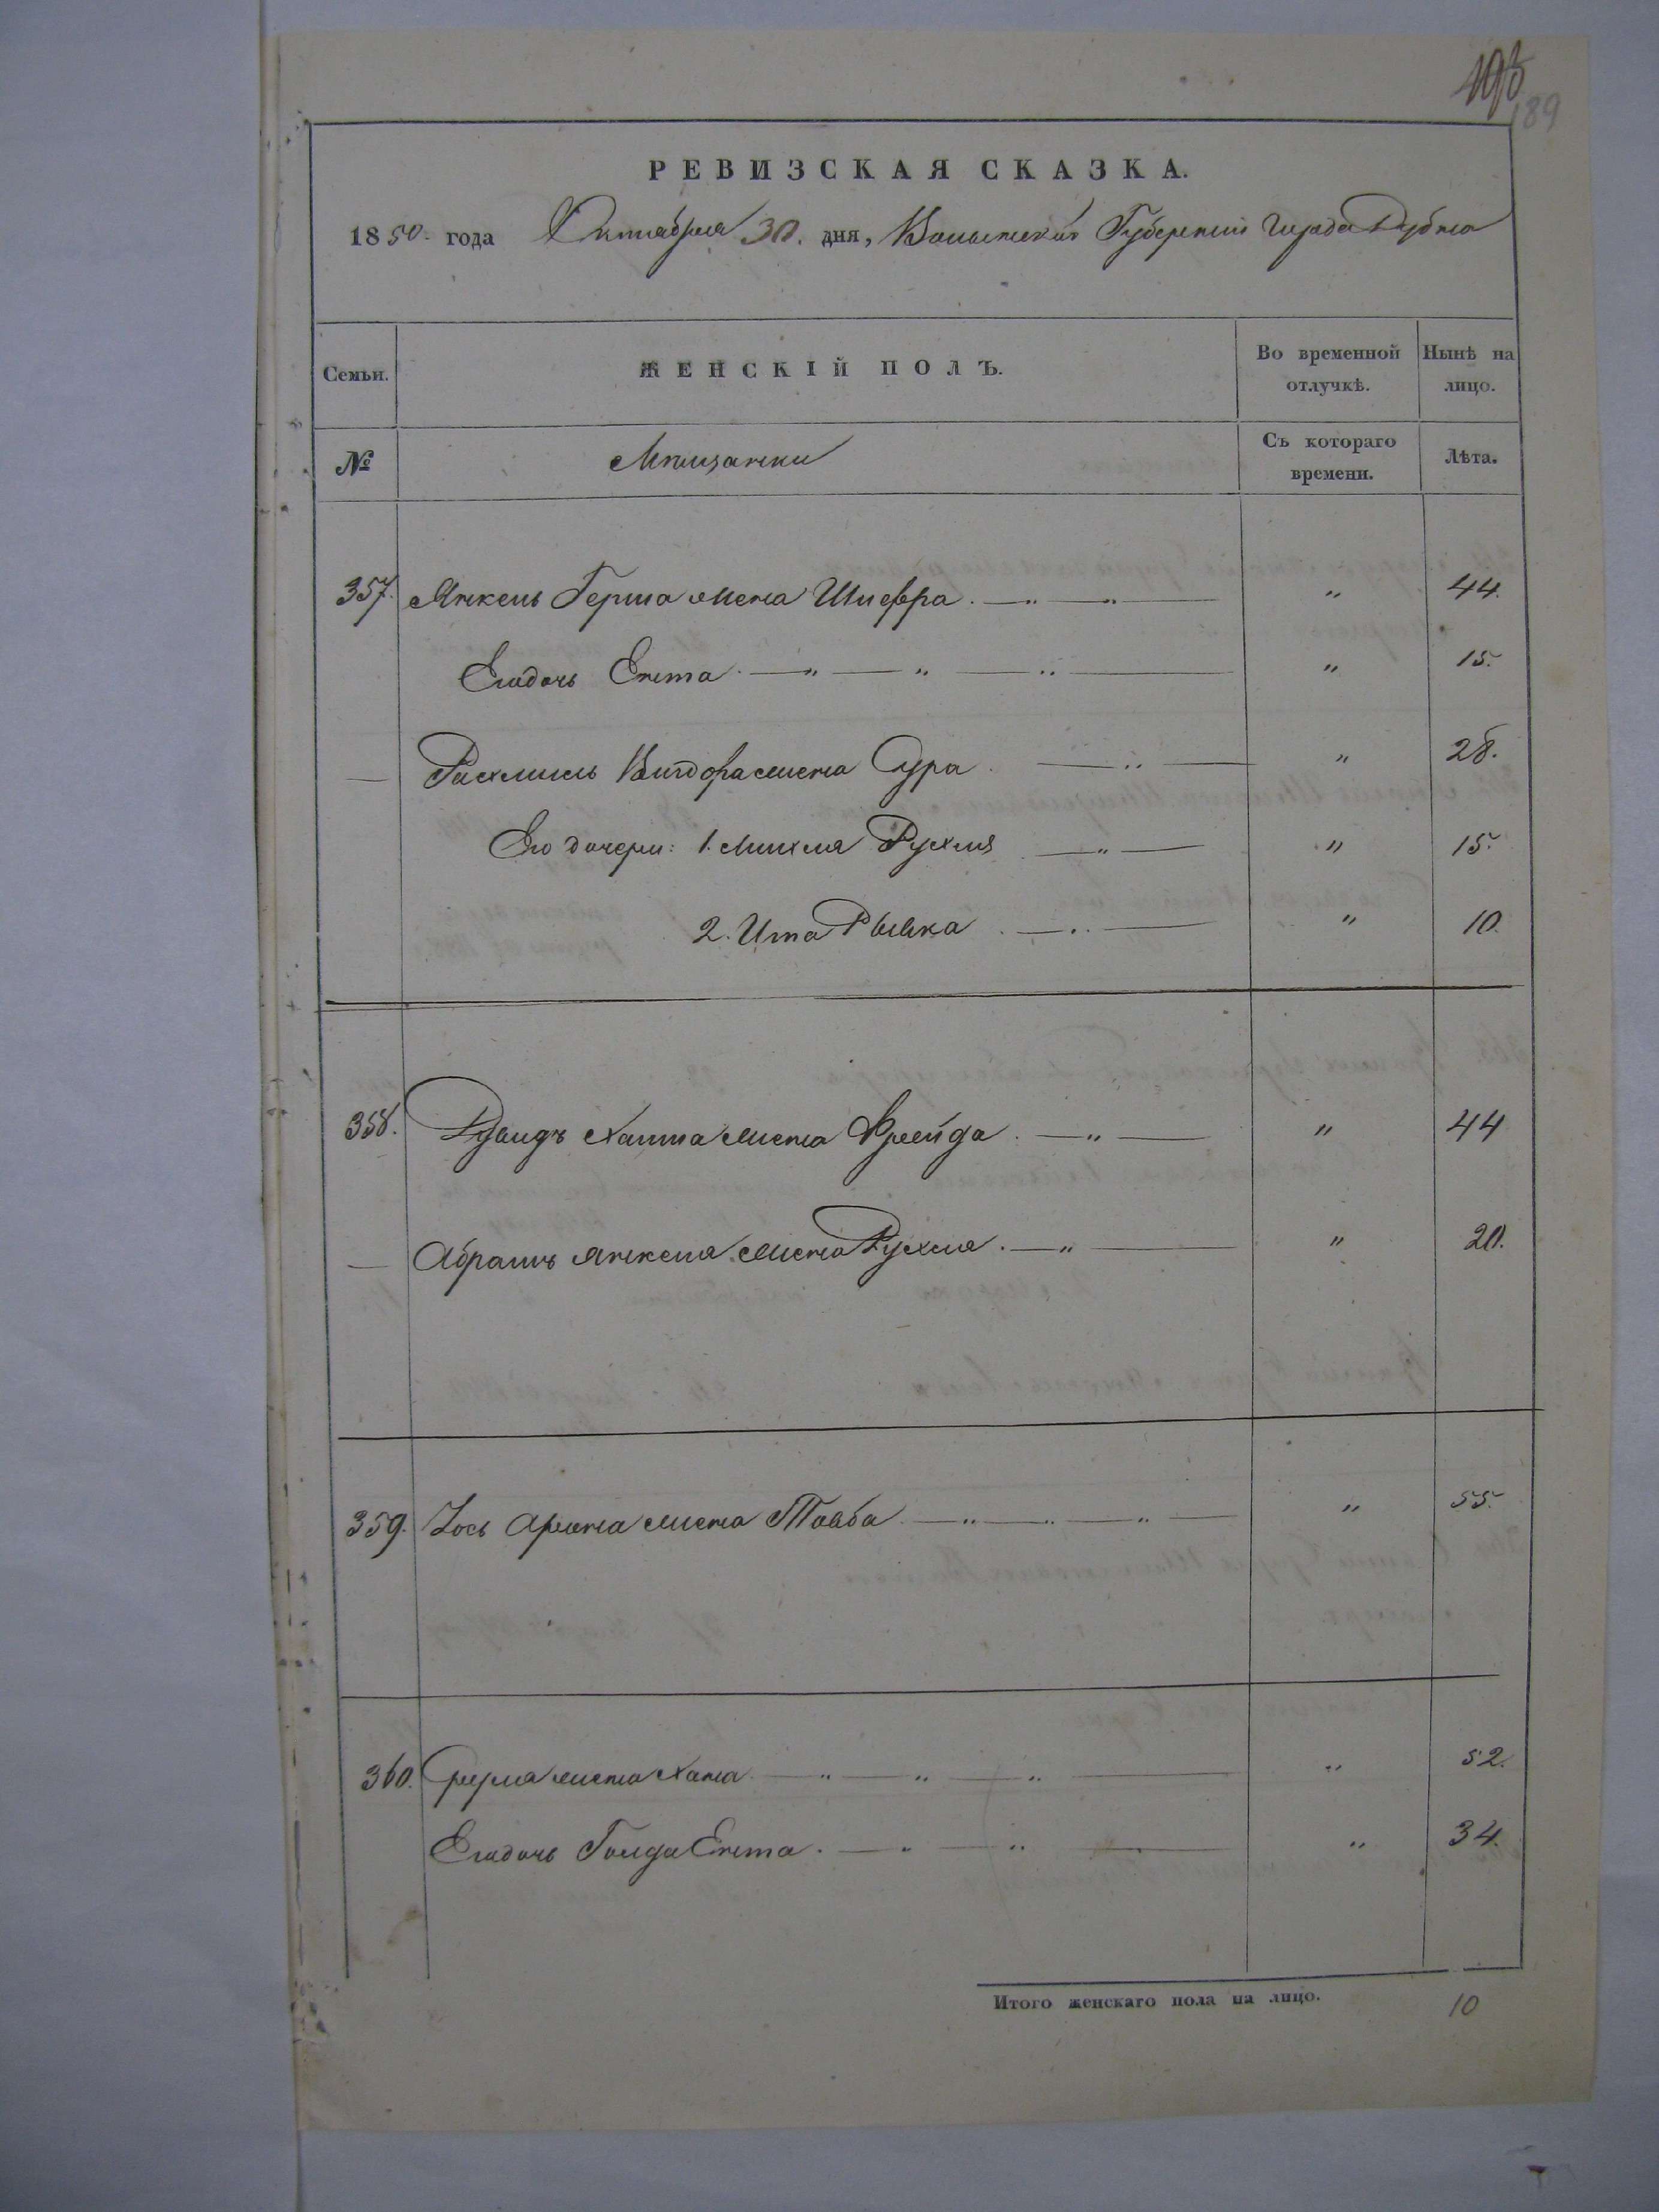 189
РЕВИЗСКАЯ СКАЗКА.
1850 года Октября 30. дня, Волынской Губернии Города Дубна
Семьи. ЖЕНСКІЙ ПОЛЪ. Во временной отлучкѣ. Нынѣ на лицо.
№ Мѣщанки Съ котораго времени. Лѣта.
357. Янкель Герша жена Шифра . — „ — „ — „ 44.
Егодочь Ента . — „ — „ — „ — „ 15.
— Рахмиль Вигдора жена Сура . — „ — „ 28.
Его дочери: 1. Михля Рухля — „ — „ 15.
2. Ита Рывка . — „ — „ 10.
358. Дувидъ Хаима жена Фрейда . — „ — „ 44
— Абрамъ Янкеля жена Рухля . — „ — „ 20.
359. Зось Арона жена Тоаба . — „ — „ — „ — „ 55.
360. Сруля жена Хана . — „ — „ — „ — „ 52.
Егодочь Голда Ента . — „ — „ — „ 34.
Итого женскаго пола на лицо. 10